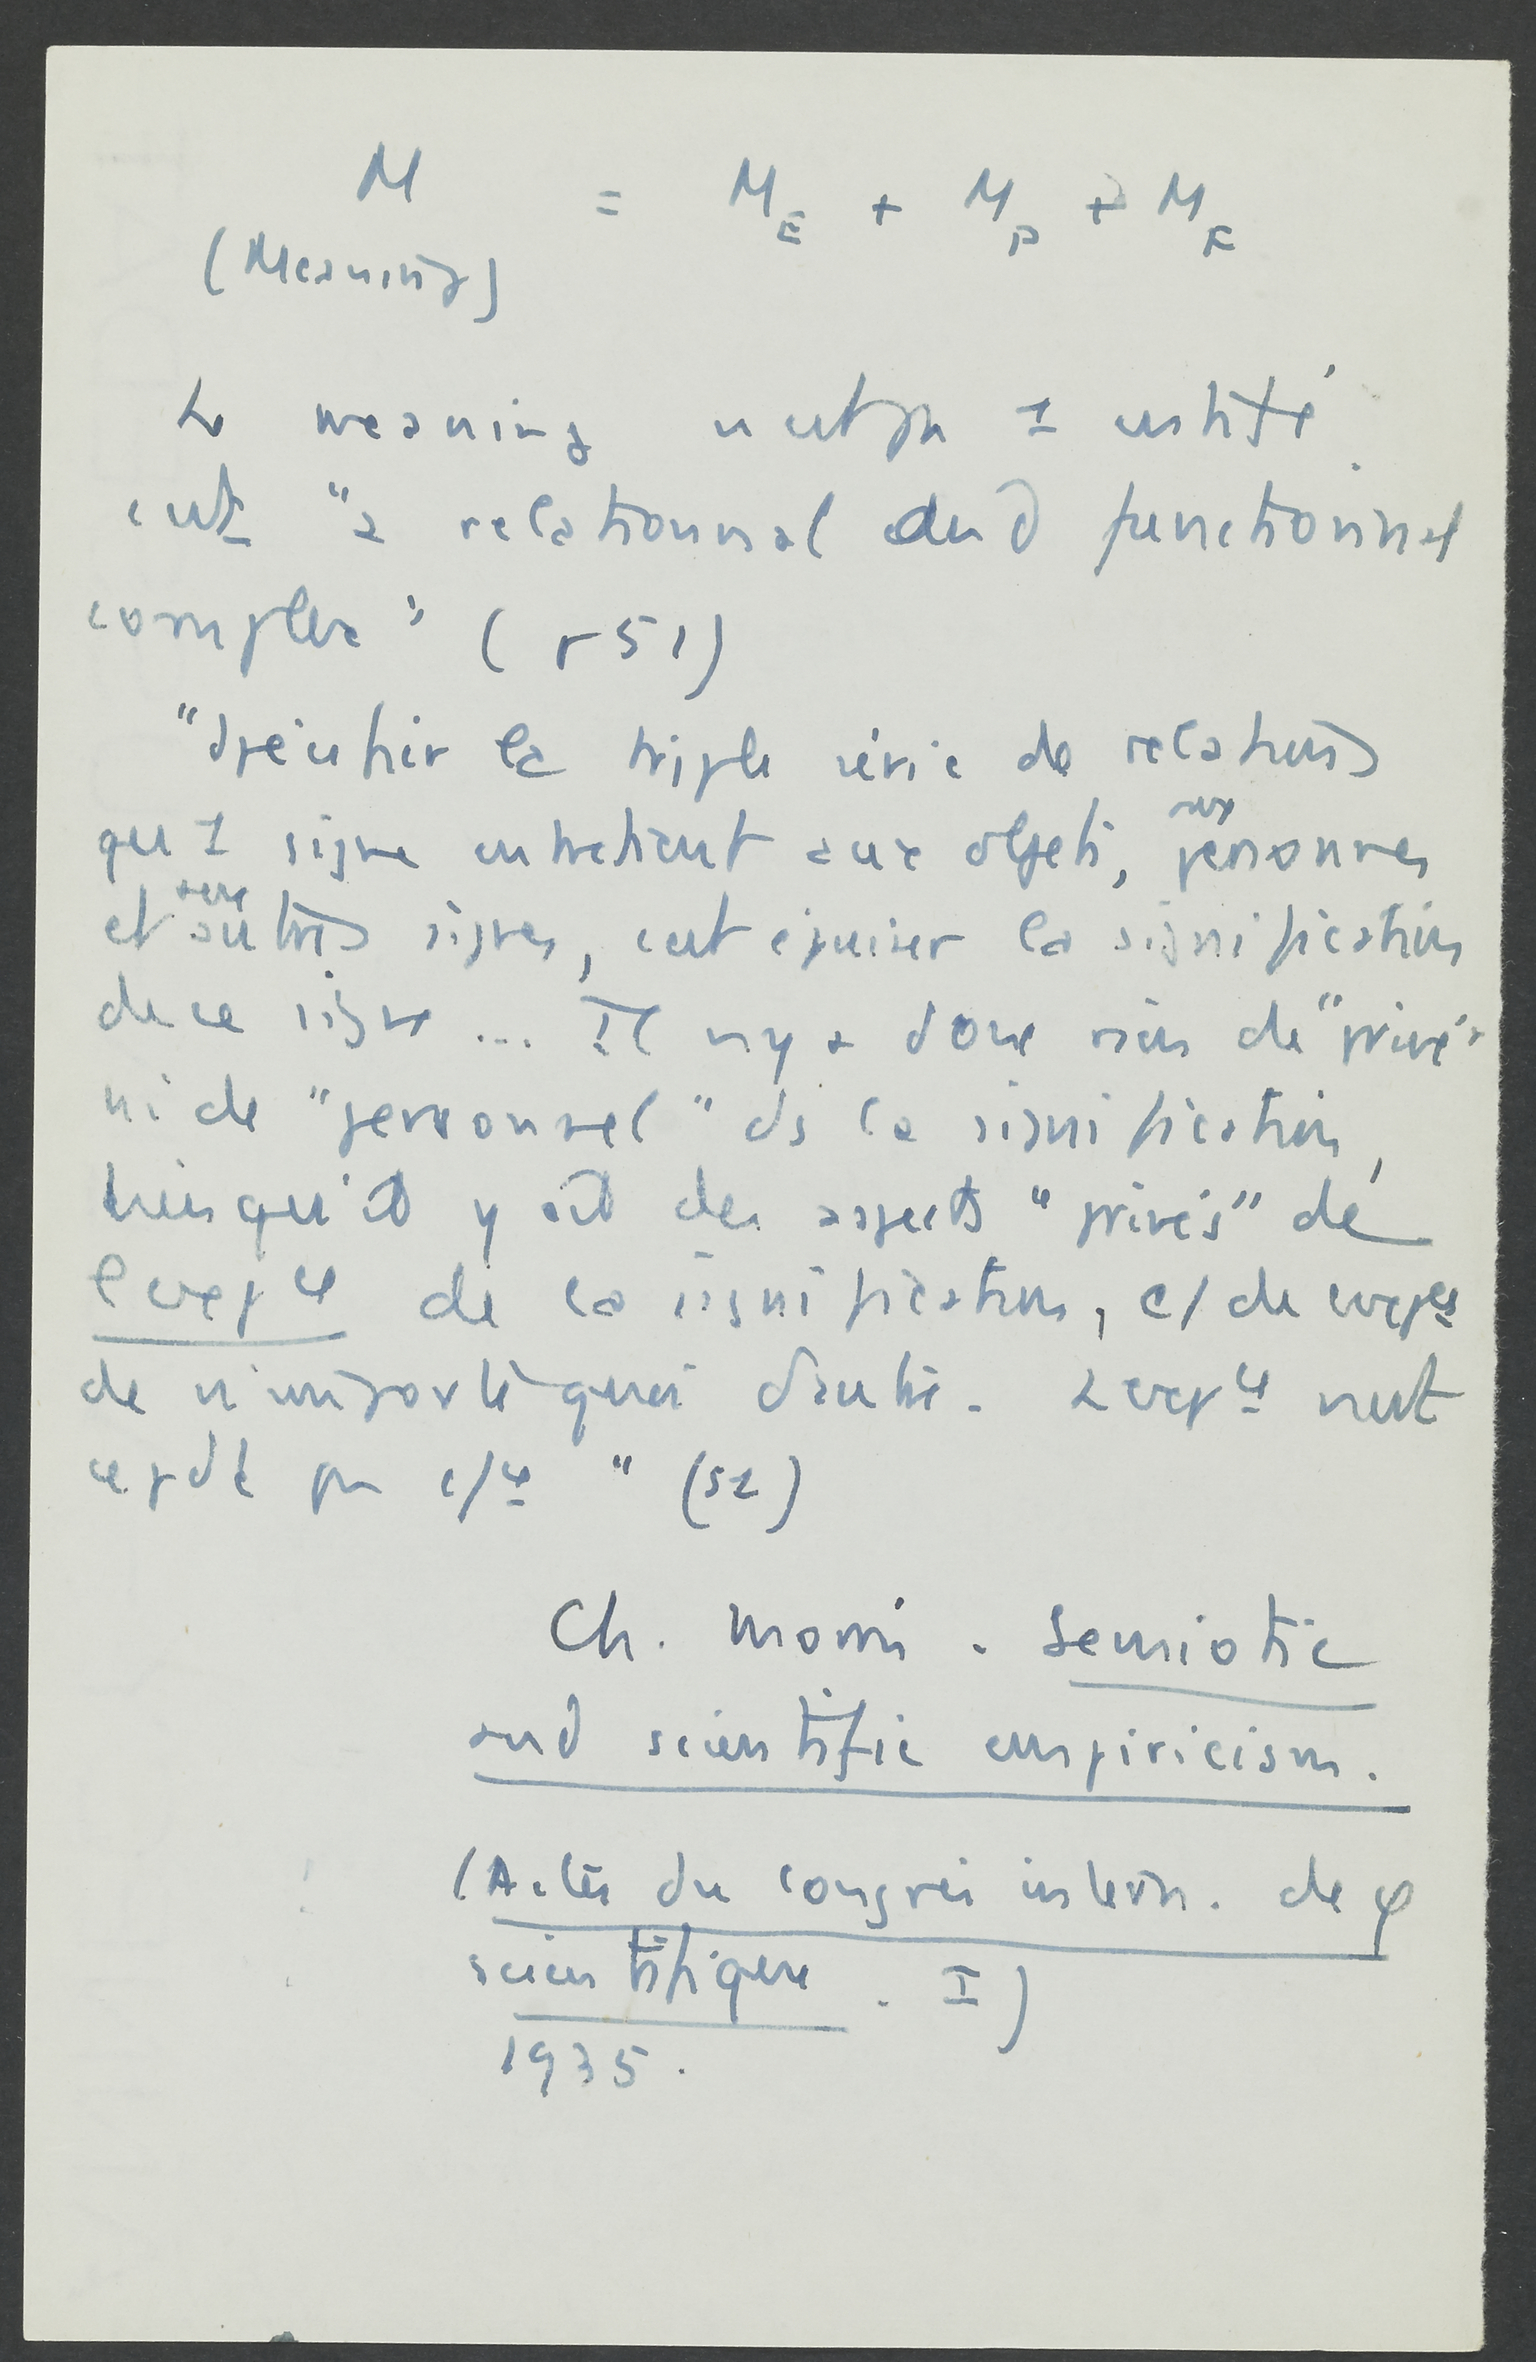 M = M_E + M_P + M_F
(Meaning)
Le meaning n'est pas 1 entité.
c'est "a relationnal and functionnal
complex" (p 51)
"Spécifier la triple série de relations
que 1 signe entretient aux objets, aux personnes
et aux autres signes, c'est épuiser la signification
de ce signe ... Il n'y a donc rien de "privé"
ni de "personnel" ds la signification,
bien qu'il y ait des aspects "privés" de
l'exp ce de la signification, c/ de l'exp ce
de n'importe quoi d'autre. L'exp ce n'est
cepdt pas c/ce " (52)
Ch. Morris. Semiotic
and scientific empiricism.
(Actes du congrès intern. de φ
scientifique. I)
1935.